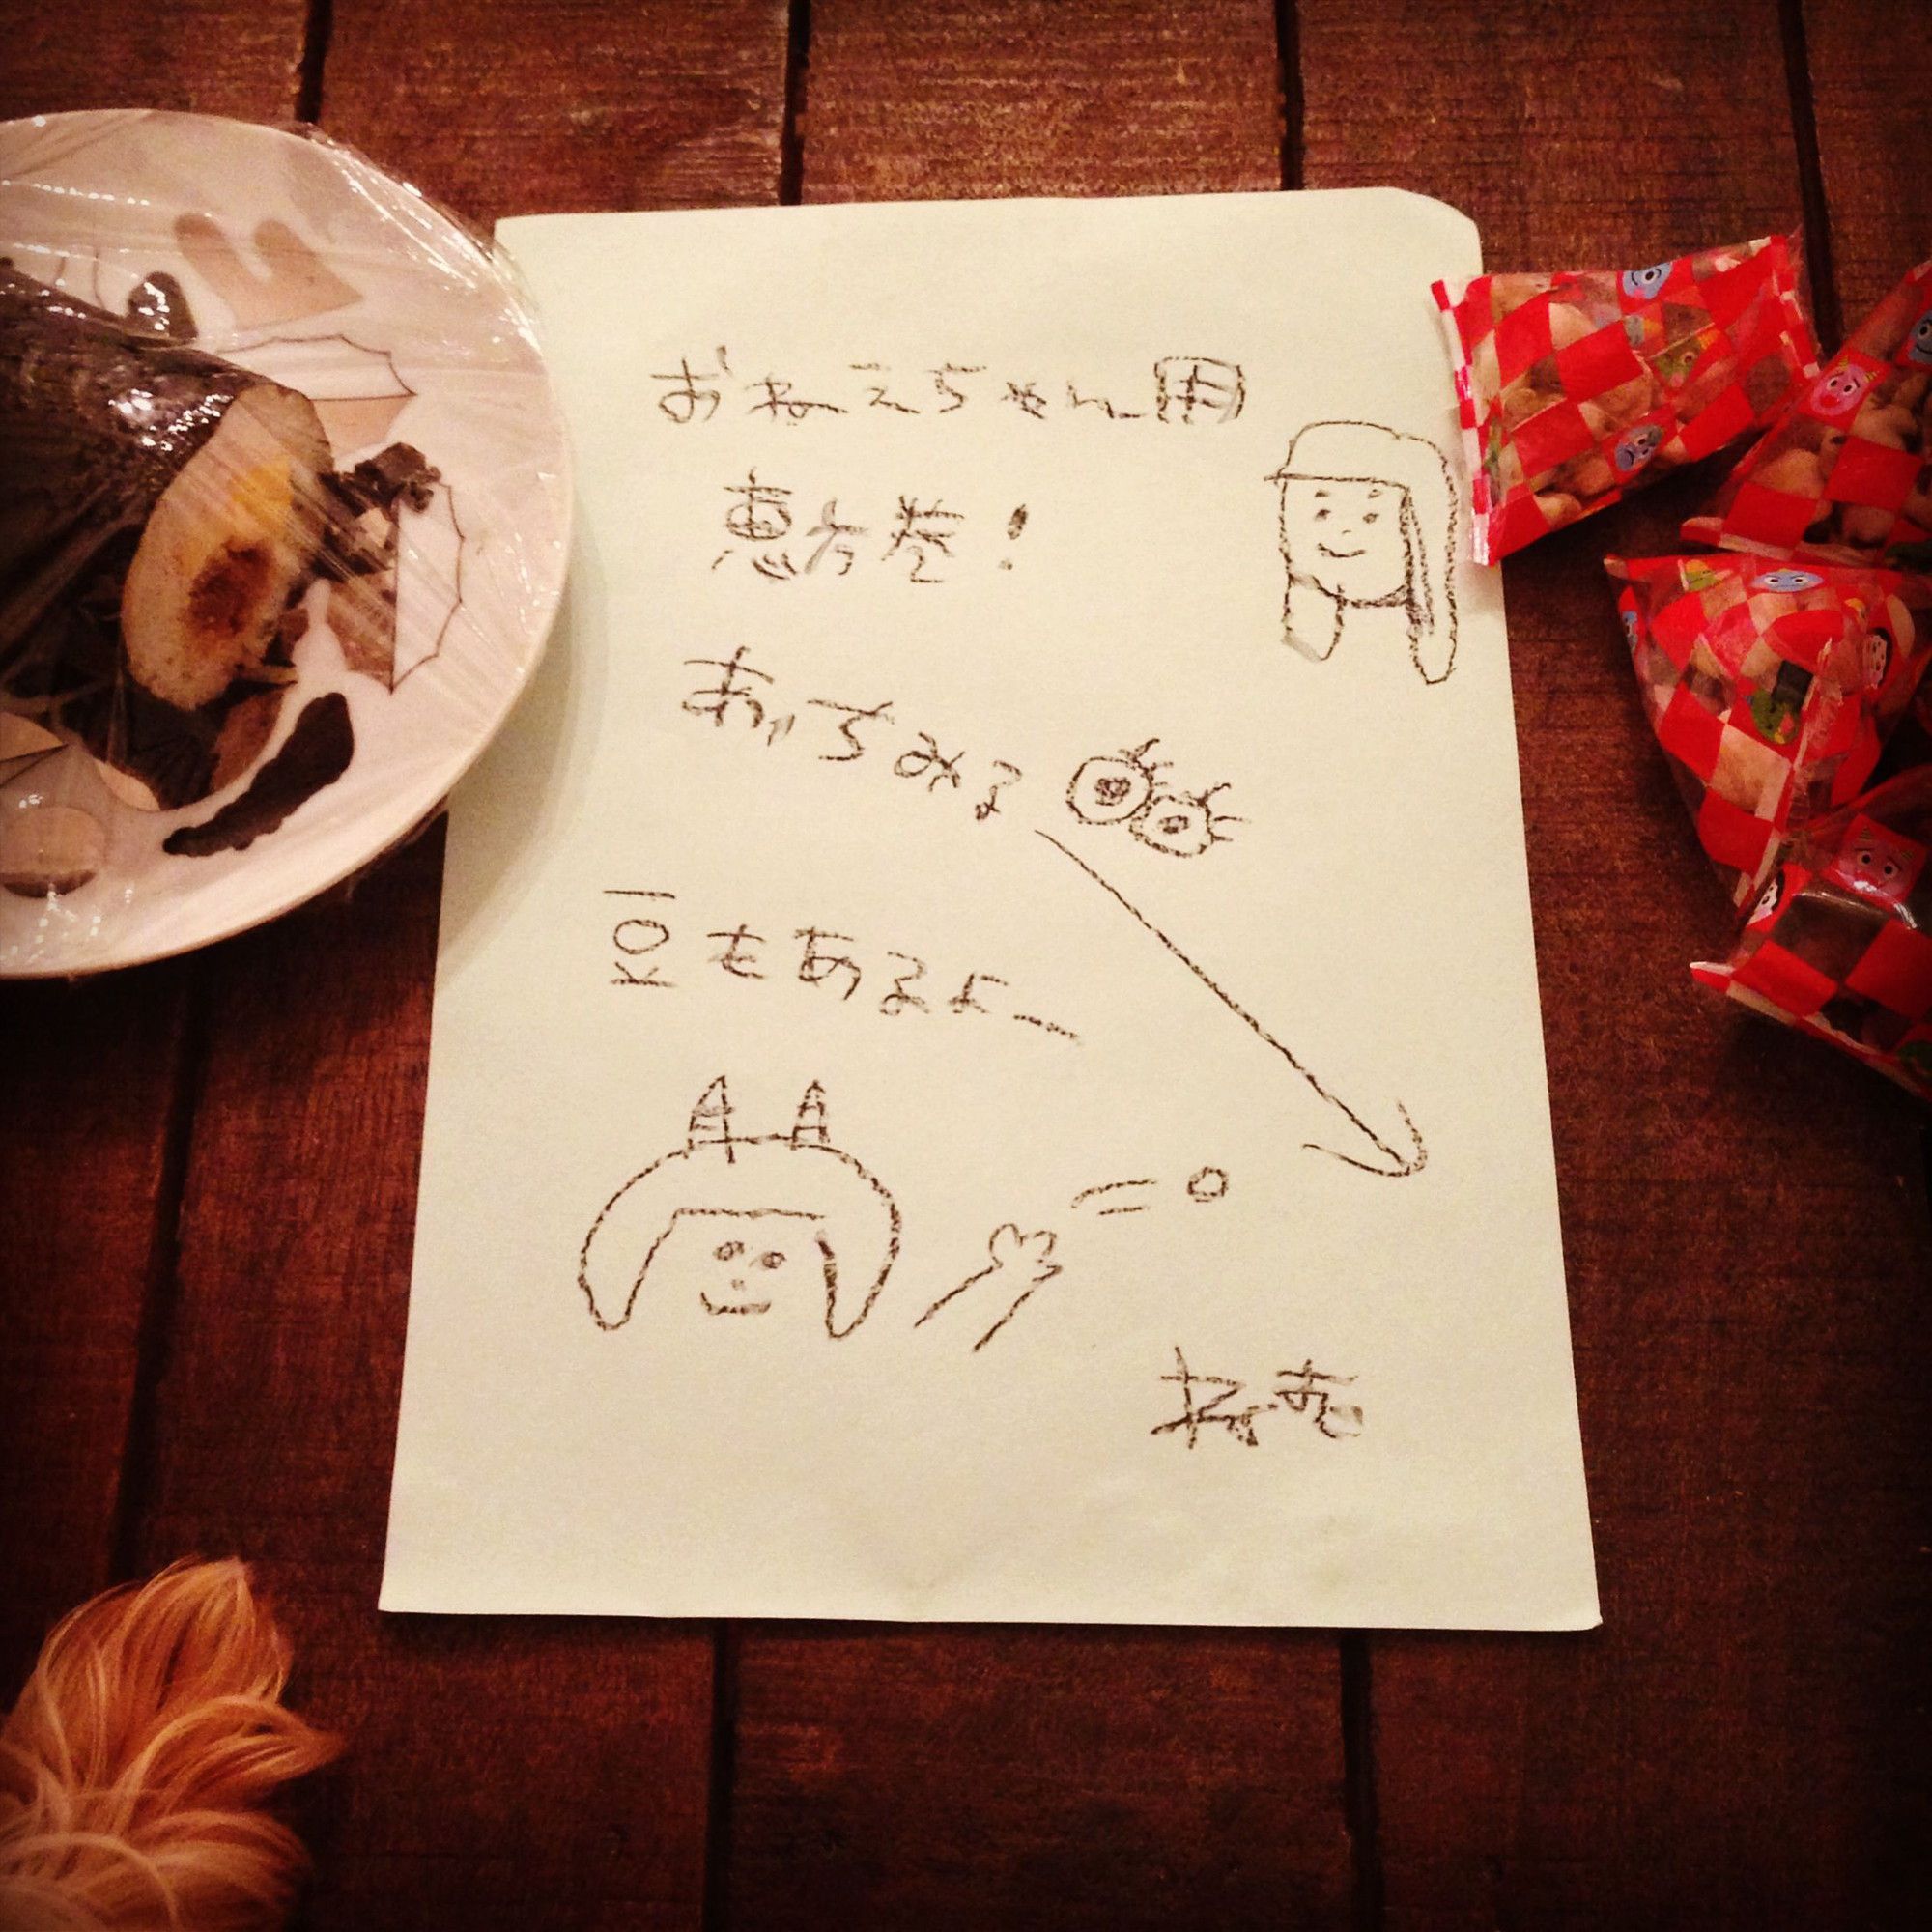 おねえちゃん用
恵方巻!
あっちみる
豆もあるよー